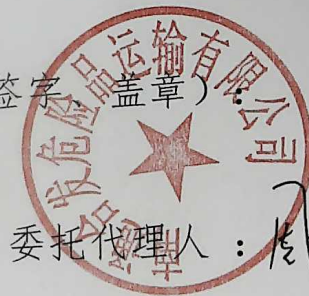 签字、盖章）：
发危险品运输有限公司
委托代理人：